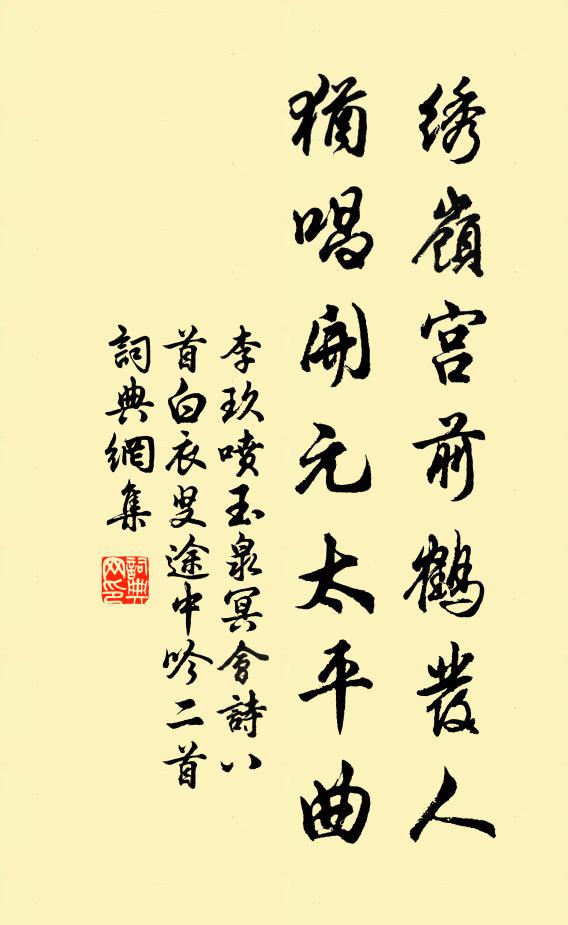 绣嶺宫前鶴發人
猶唱開元太平曲
李玖噴玉泉冥會詩八
首白衣叟途中吟二首
詞典網集
詞典网印